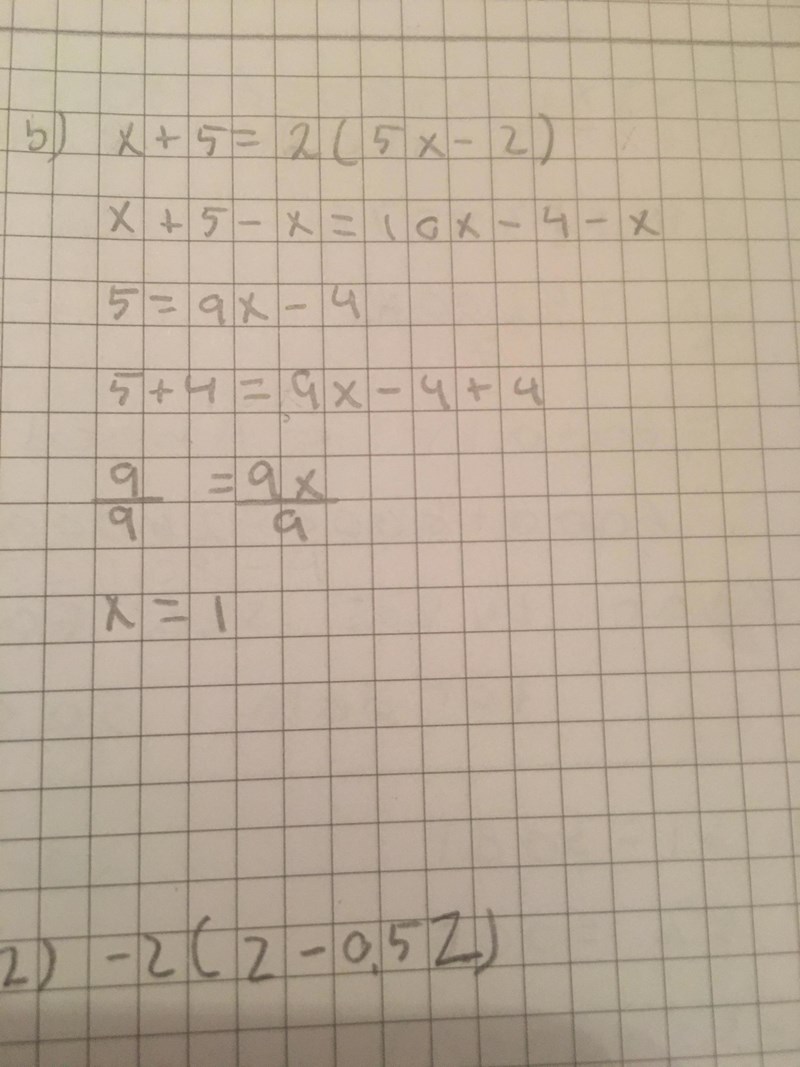 b) x + 5 = 2 ( 5 x - 2 )
x + 5 - x = 10x - 4 - x
5 = 9x - 4
5 + 4 = 9x - 4 + 4
9/9 = 9x/9
x = 1
2) -2 ( 2 - 0,5 Z )